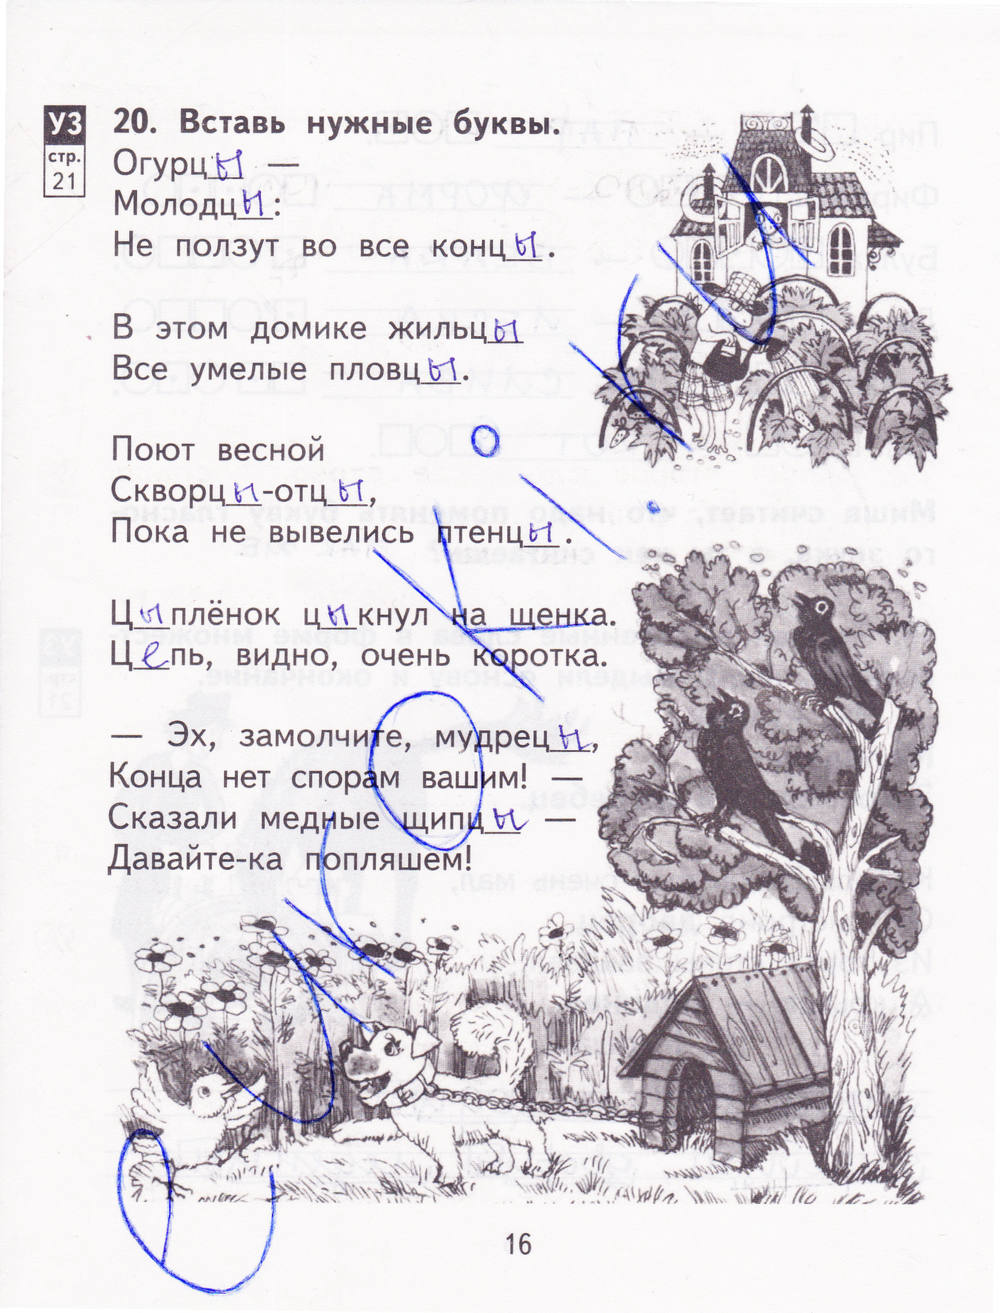 УЗ
стр.
21
20. Вставь нужные буквы.
Огурцы —
Молодцы:
Не ползут во все концы.
В этом домике жильцы
Все умелые пловцы.
Поют весной
Скворцы-отцы,
Пока не вывелись птенцы.
Цыплёнок цыкнул на щенка.
Цепь, видно, очень коротка.
— Эх, замолчите, мудрецы,
Конца нет спорам вашим! —
Сказали медные щипцы —
Давайте-ка попляшем!
16